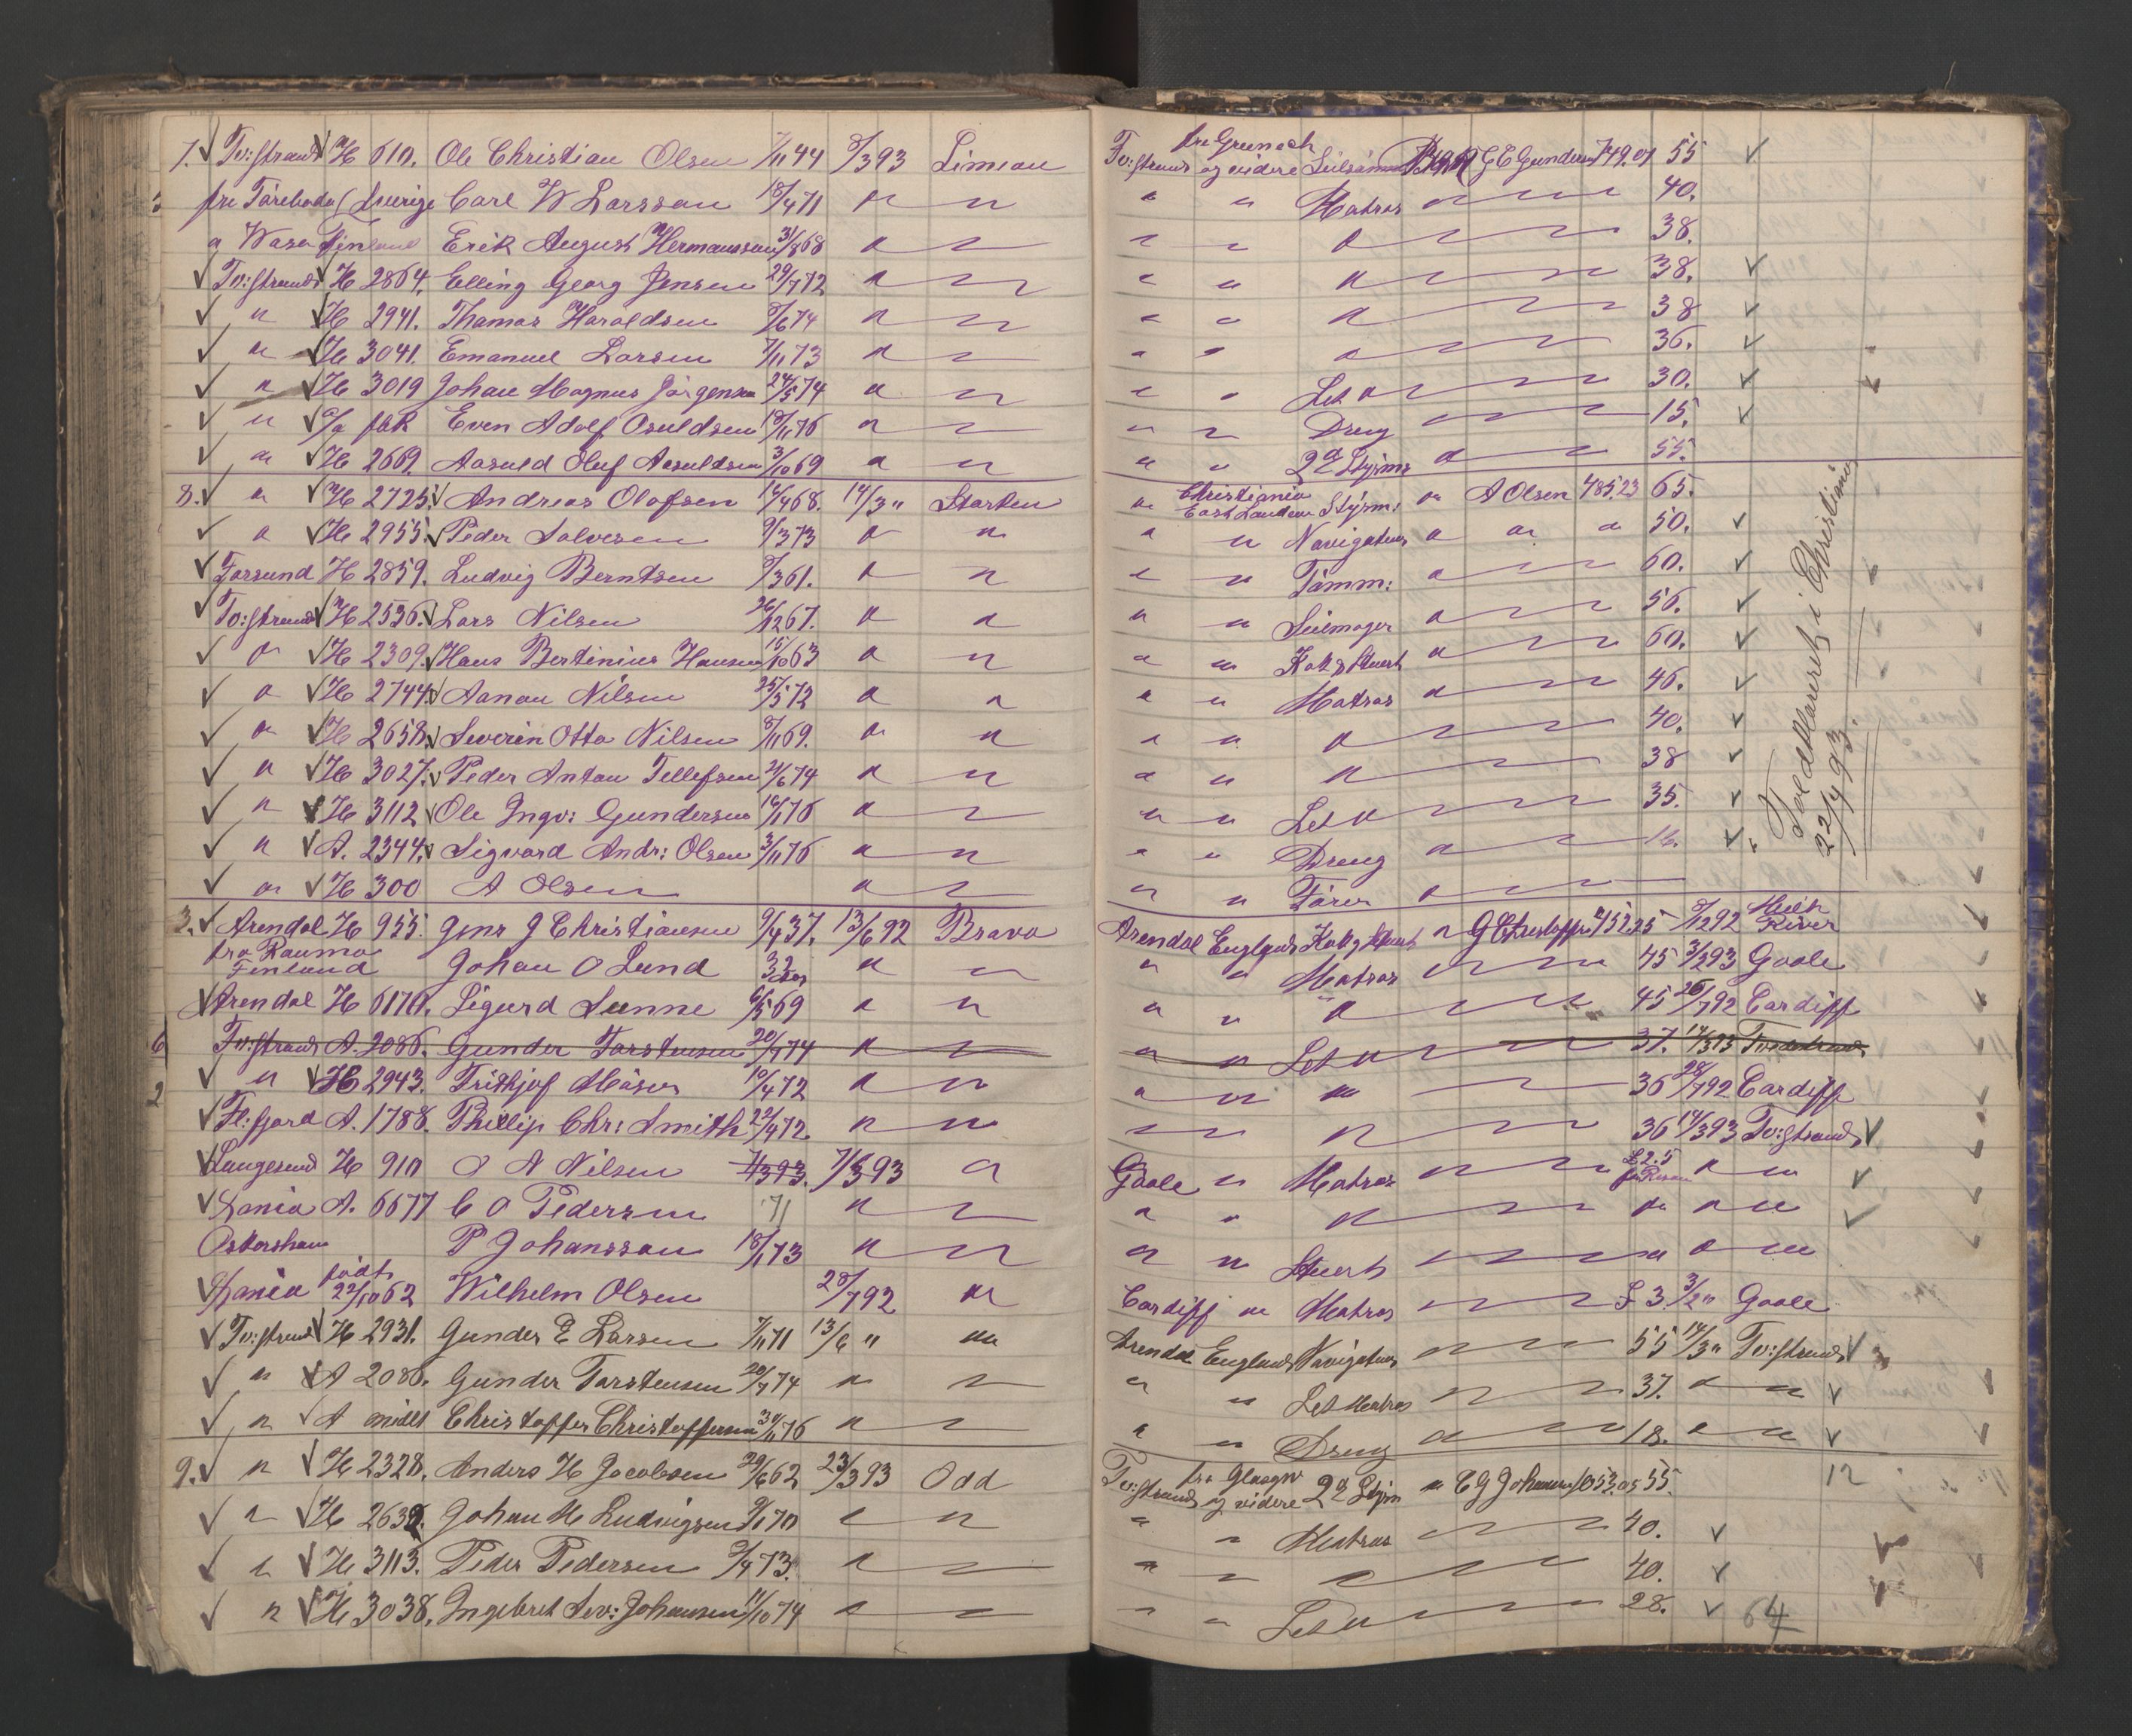 7. Tv:strand H 610. Ole Christian Olsen 7/11 44 8/3 93 Limeau Tv:strand fra Greenock og videre G E Gundersen 749.01 55
fra Töreboda (Sverige Carl W Larsson 18/4 71 " " " " Matros " 40.
" Wasa Finland Erik August Hermansson 31/8 68 " " " " " 38.
Tv:strand H 2864. Elling Georg Jensen 29/7 72 " " " " " 38.
" H 2941. Thomas Haroldsen 8/6 74 " " " " " 38
" H 3041. Emanuel Larsen 7/11 73 " " " " " 36.
" H 3019 Johan Magnus Jörgensen 24/5 74 " " " " Let " 30.
" Even Adolf Osuldsen 18/11 76 " " " " Dreng " 15.
" H 2669. Aasuld Oluf Aasuldsen 3/10 69 " " " " 2d Styrm " 55.
8. " H 2725. Andreas Olofsen 14/4 68. 14/3 " Starten " Christiania East London Styrm: " A Olsen 485.23 65.
" H 2955. Peder Salvesen 9/3 73 " " " " Navigatør " " " 50.
Farsund H 2859. Ludvig Berntsen 8/3 61. " " " " Tømm: " 60.
Tv:strand H 2536. Lars Nilsen 26/12 67. " " " " Seilmager " 56.
" H 2309. Hans Bertinius Hansen 15/10 63 " " " " Kok & Stuert " 60.
" H 2744. Aanon Nilsen 25/5 72 " " " " Matros " 46.
" H 2658. Severin Otto Nilsen 8/11 69. " " " " " 40.
" H 3027. Peder Anton Tellefsen 21/6 74 " " " " " 38
" H 3112 Ole Ingv: Gundersen 16/1 76 " " " " Let " 35.
" A. 2344. Sigvard Andr: Olsen 3/11 76 " " " " Dreng " 16.
" H 300 A Olsen " " " " Fører "
i Christiania
22/4 93.
3. Arendal H 955. Jens J Christiansen 9/4 37. 13/6 92 Bravo Arendal England Kok & Stuert " 452.25 8/12 92 River
fra Rauma Finland Johan O Lund 32 aar " " " " Matros " 45 3/2 93 Goole
Arendal H 6170. Sigurd Sunne 6/5 69 " " " " " 45 26/7 92 Cardiff
6 Tv:strand A. 2086. Gunder Torstensen 20/7 74 " " " " Let " 37. 14/3 93 Tvedestrand
2 " H 2943. Frithjof Möser 10/4 72 " " " " " 36 28/7 92 Cardiff
Fl:fjord A. 1788. Phillip Chr: Smith 22/4 72. " " " " " 36 14/3 93 Tv:strand
Langesund H 910 O A Nilsen 7/3 93. 7/3 93 " Goole " Matros " £ 2.5 " "
Dania A. 6677 C O Pedersen 71 " " " " " " " "
Oskarshamn P Johansson 18/1 73 " " " " Stuert " " " "
Dania födt 22/10 62 Wilhelm Olsen 28/7 92 " Cardiff " Matros " £ 3. 3/2 " Goole
Tv:strand H 2931. Gunder E Larsen 7/11 71 13/6 " " Arendal England Navigatør " 55 14/3 " Tv:strand
" A 2086. Gunder Torstensen 20/7 74 " " " " Let Matros " 37. " "
" A midlt Christoffer Christoffersen 30/11 76 " " " " Dreng " 18. " "
9. " H 2328. Anders H Jacobsen 29/6 62 23/3 93 Odd Tv:strand fra Glasgow og videre 2d Styrm " C G Johansen 1053.05 55. 12
" H 2638. Johan M Ludvigsen 9/1 70 " " " " Matros " 40.
" H 3113. Peder Pedersen 9/4 73. " " " " " 40.
" H 3038. Ingebret Sev: Johansen 11/10 74 " " " " Let " 28. 64